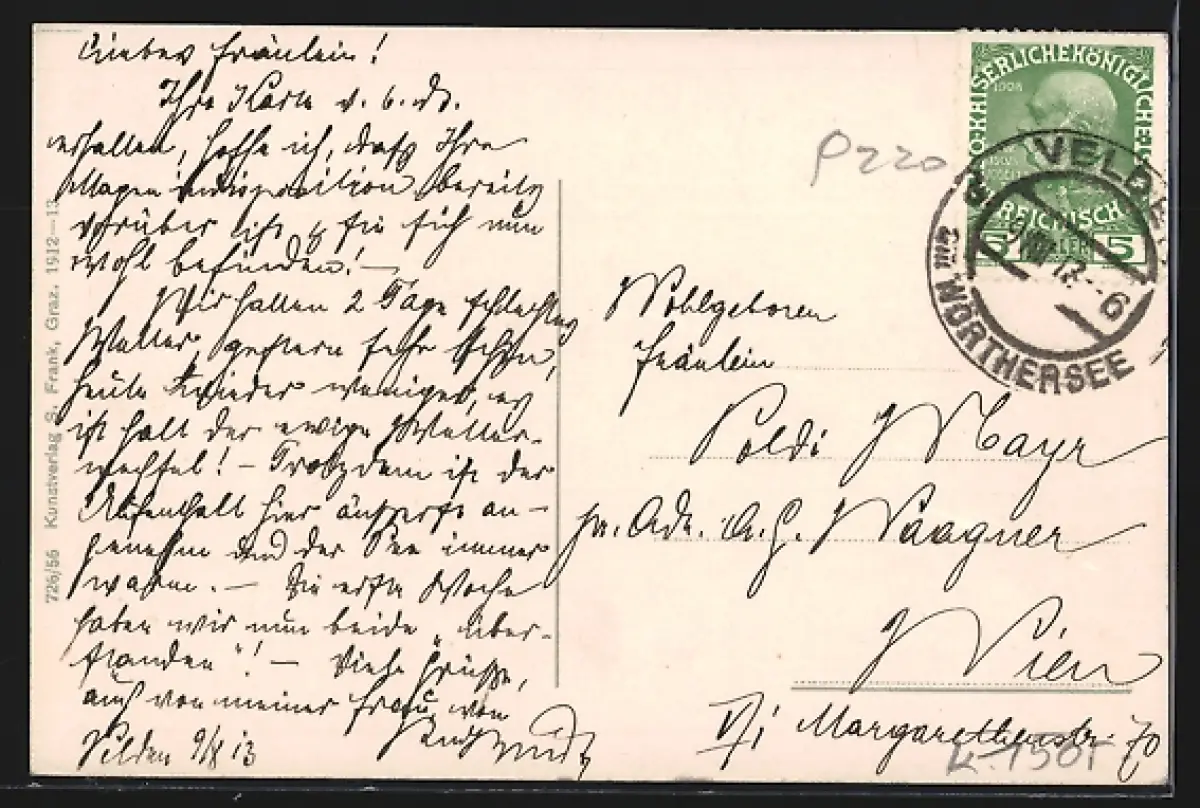 Liebes Fräulein!
Ihre Karte v. 6. ds.
erhalten, hoffe ich, daß Ihre
Magenindisposition bereits
vorüber ist & sie sich nun
wohl befinden! —
Wir hatten 2 Tage schlechtes
Wetter, gestern sehr schön,
heute wieder weniger, es
ist halt der ewige Wetter-
wechsel! — Trotzdem ist der
Aufenthalt hier äußerst an-
genehm und der See immer
warm. — Die erste Woche
haben wir nun beide „über-
standen"! — Viele Grüße,
auch von meiner Frau, von
Velden 9/8 13
726/56 Kunstverlag S. Frank, Graz. 1912—13
P220
K.K. ÖSTERREICHISCHE
KAISERLICHE KÖNIGLICHE
1908
5 HELLER 5
VELDEN
am WÖRTHERSEE
9 VIII 13 6
Wohlgeboren
Fräulein
Poldi Mayr
pr. Adr. A.G. Waagner
Wien
V/1 Margarethenstr. 70